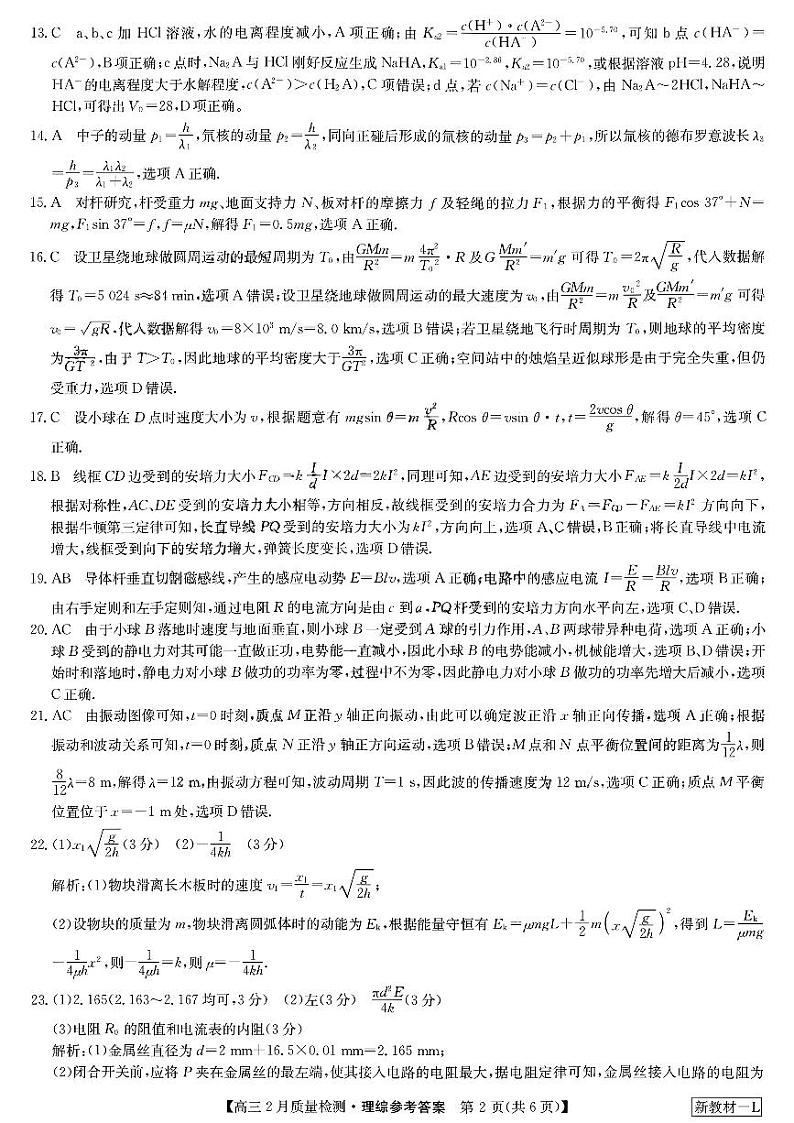 13. C　a、b、c 加 HCl 溶液,水的电离程度减小,A 项正确;由 Kₐ₂=c(H⁺)·c(A²⁻)/c(HA⁻)=10⁻⁵·⁷⁰,可知 b 点 c(HA⁻)=
c(A²⁻),B 项正确;c 点时,Na₂A 与 HCl 刚好反应生成 NaHA,Kₐ₁=10⁻²·⁸⁶,Kₐ₂=10⁻⁵·⁷⁰,或根据溶液 pH=4.28,说明
HA⁻的电离程度大于水解程度,c(A²⁻)>c(H₂A),C 项错误;d 点,若 c(Na⁺)=c(Cl⁻),由 Na₂A~2HCl,NaHA~
HCl,可得出 V₀=28,D 项正确。
14. A　中子的动量 p₁=h/λ₁,氘核的动量 p₂=h/λ₂,同向正碰后形成的氚核的动量 p₃=p₂+p₁,所以氚核的德布罗意波长 λ₃
=h/p₃=λ₁λ₂/(λ₁+λ₂),选项 A 正确.
15. A　对杆研究,杆受重力 mg、地面支持力 N、板对杆的摩擦力 f 及轻绳的拉力 F₁,根据力的平衡得 F₁cos 37°+N=
mg,F₁sin 37°=f,f=μN,解得 F₁=0.5mg,选项 A 正确.
16. C　设卫星绕地球做圆周运动的最短周期为 T₀,由GMm/R²=m 4π²/T₀²·R 及 G Mm′/R²=m′g 可得 T₀=2π√(R/g),代入数据解
得 T₀=5 024 s≈84 min,选项 A 错误;设卫星绕地球做圆周运动的最大速度为 v₀,由GMm/R²=m v₀²/R及GMm′/R²=m′g 可得
v₀=√(gR),代入数据解得 v₀=8×10³ m/s=8.0 km/s,选项 B 错误;若卫星绕地飞行时周期为 T₀,则地球的平均密度
为3π/GT₀²,由于 T>T₀,因此地球的平均密度大于3π/GT²,选项 C 正确;空间站中的烛焰呈近似球形是由于完全失重,但仍
受重力,选项 D 错误.
17. C　设小球在 D 点时速度大小为 v,根据题意有 mgsin θ=m v²/R,Rcos θ=vsin θ·t,t=2vcos θ/g,解得 θ=45°,选项 C
正确.
18. B　线框 CD 边受到的安培力大小 F_CD=k I/d I×2d=2kI²,同理可知,AE 边受到的安培力大小 F_AE=k I/2d I×2d=kI²,
根据对称性,AC、DE 受到的安培力大小相等,方向相反,故线框受到的安培力合力为 F_A=F_CD-F_AE=kI² 方向向下,
根据牛顿第三定律可知,长直导线 PQ 受到的安培力大小为 kI²,方向向上,选项 A、C 错误,B 正确;将长直导线中电流
增大,线框受到向下的安培力增大,弹簧长度变长,选项 D 错误.
19. AB　导体杆垂直切割磁感线,产生的感应电动势 E=Blv,选项 A 正确;电路中的感应电流 I=E/R=Blv/R,选项 B 正确;
由右手定则和左手定则知,通过电阻 R 的电流方向是由 c 到 a,PQ 杆受到的安培力方向水平向左,选项 C、D 错误.
20. AC　由于小球 B 落地时速度与地面垂直,则小球 B 一定受到 A 球的引力作用,A、B 两球带异种电荷,选项 A 正确;小
球 B 受到的静电力对其可能一直做正功,电势能一直减小,因此小球 B 的电势能减小,机械能增大,选项 B、D 错误;开
始时和落地时,静电力对小球 B 做功的功率为零,过程中不为零,因此静电力对小球 B 做功的功率先增大后减小,选项
C 正确.
21. AC　由振动图像可知,t=0 时刻,质点 M 正沿 y 轴正向振动,由此可以确定波正沿 x 轴正向传播,选项 A 正确;根据
振动和波动关系可知,t=0 时刻,质点 N 正沿 y 轴正方向运动,选项 B 错误;M 点和 N 点平衡位置间的距离为1/12λ,则
8/12λ=8 m,解得 λ=12 m,由振动方程可知,波动周期 T=1 s,因此波的传播速度为 12 m/s,选项 C 正确;质点 M 平衡
位置位于 x=-1 m 处,选项 D 错误.
22. (1)x₁√(g/2h)(3 分)　(2)-1/4kh　(3 分)
解析:(1)物块滑离长木板时的速度 v₁=x₁/t=x₁√(g/2h);
(2)设物块的质量为 m,物块滑离圆弧体时的动能为 Eₖ,根据能量守恒有 Eₖ=μmgL+1/2 m(x√(g/2h))²,得到 L=Eₖ/μmg
-1/4μh x²,则-1/4μh=k,则 μ=-1/4kh.
23. (1)2.165(2.163~2.167 均可,3 分)　(2)左(3 分)　πd²E/4k(3 分)
(3)电阻 R₀ 的阻值和电流表的内阻(3 分)
解析:(1)金属丝直径为 d=2 mm+16.5×0.01 mm=2.165 mm;
(2)闭合开关前,应将 P 夹在金属丝的最左端,使其接入电路的电阻最大,据电阻定律可知,金属丝接入电路的电阻为
【高三 2 月质量检测·理综参考答案　第 2 页(共 6 页)】
新教材—L